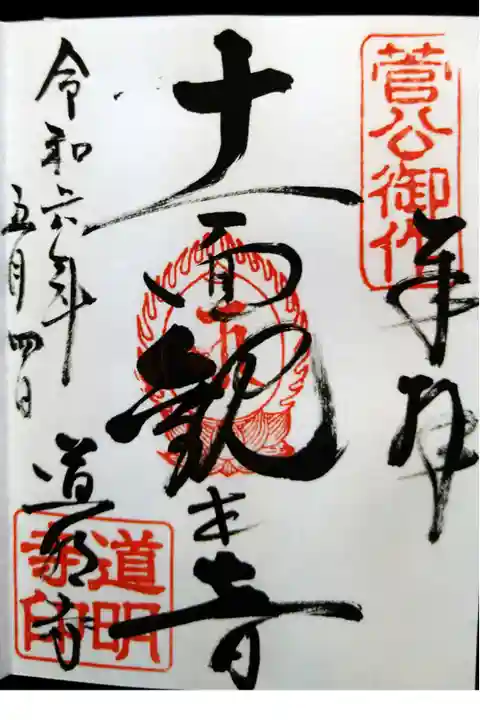 菅公御作
奉拝
十一面観世音
令和六年
五月四日
道明寺
道明
寺印